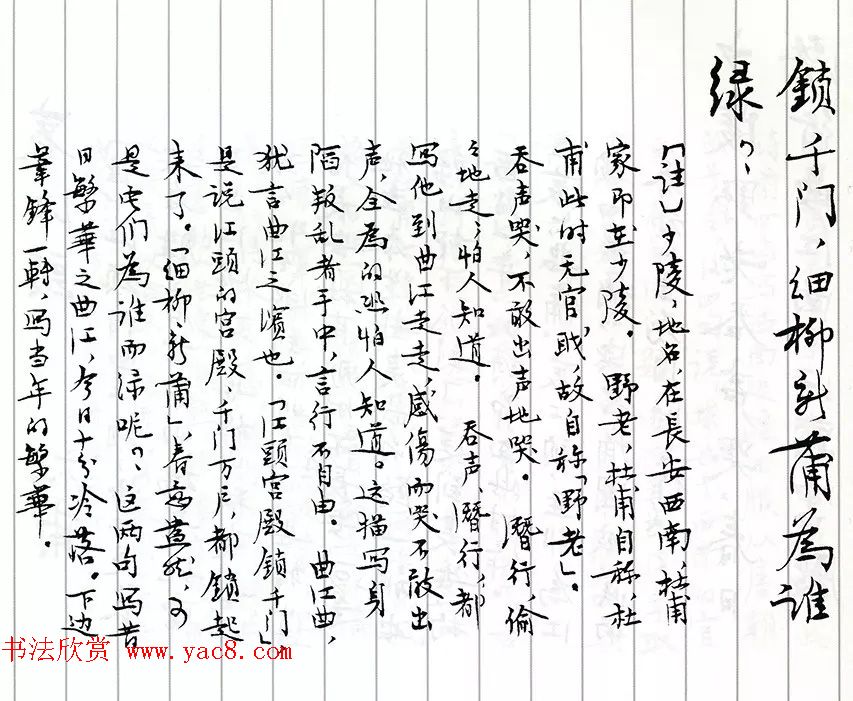 鎖千门，细柳新蒲為谁
绿？
【註】少陵，地名，在長安西南，杜甫
家即在少陵。野老，杜甫自称，杜
甫此时无官职，故自称「野老」。
吞声哭，不敢出声地哭。潛行，偷
偷地走，怕人知道。吞声、潛行，都
写他到曲江走走，感傷而哭不敢出
声，全為的恐怕人知道。这描写身
陷叛乱者手中，言行不自由。曲江曲，
犹言曲江之濱也。「江頭宫殿鎖千门」
是说江頭的宫殿，千门万户，都鎖起
来了。「细柳、新蒲」，春意盎然，可
是它们為谁而绿呢？这两句写昔
日繁華之曲江，今日十分冷落。下边
筆鋒一轉，写当年的繁華。
书法欣赏 www.yac8.com